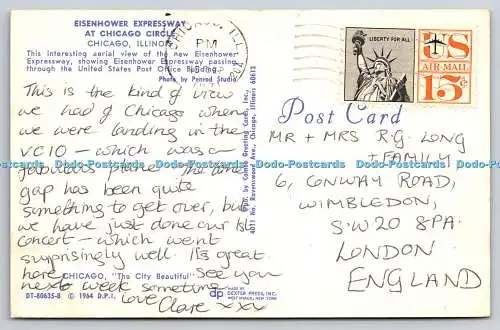 EISENHOWER EXPRESSWAY
AT CHICAGO CIRCLE
CHICAGO, ILLINOIS
This interesting aerial view of the new Eisenhower
Expressway, showing Eisenhower Expressway passing
through the United States Post Office Building.
Photo by Penrod Studio
This is the kind of view
we had of Chicago when
we were landing in the
VC10 - which was a
fabulous plane. The time
gap has been quite
something to get over, but
we have just done our 1st
concert - which went
surprisingly well. It's great
here
CHICAGO, "The City Beautiful"
See you
next week sometime
love
Clare xxx
DT-80635-B © 1964 D.P.I.
Pub. by Comics Greeting Cards, Inc.,
4011 No. Ravenswood Ave., Chicago, Illinois 60613
dp
MADE BY
DEXTER PRESS, INC.
WEST NYACK, NEW YORK
PM
LIBERTY FOR ALL
US
AIR MAIL
15¢
Post Card
MR + MRS R.G. LONG
+ FAMILY
6, CONWAY ROAD,
WIMBLEDON,
S.W.20 8PA.
LONDON
ENGLAND
Dodo-Postcards Dodo-Postcards Dodo-Postcards Dodo-Postcards Dodo-Postcards